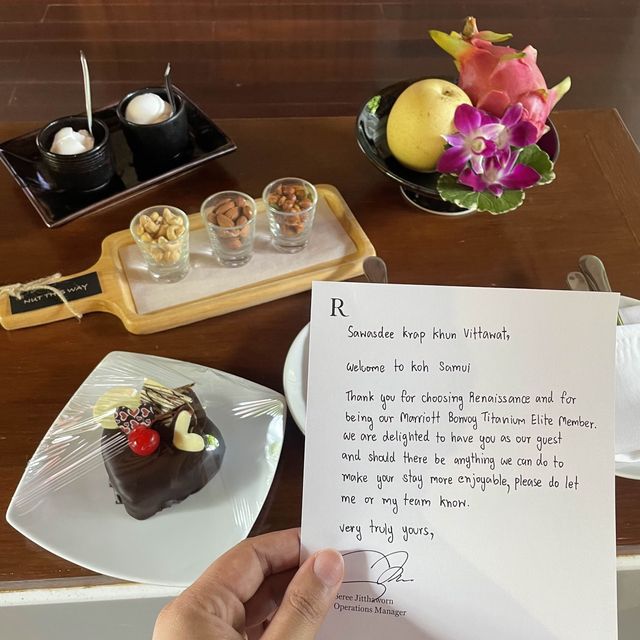 NUT THIS WAY
R
Sawasdee krap khun Vittawat,
Welcome to Koh Samui
Thank you for choosing Renaissance and for
being our Marriott Bonvoy Titanium Elite Member.
We are delighted to have you as our guest
and should there be anything we can do to
make your stay more enjoyable, please do let
me or my team know.
very truly yours,
Seree Jitthaworn
Operations Manager